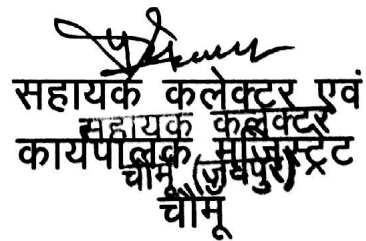 सहायक कलेक्टर एवं
सहायक कलेक्टर
कार्यपालक मजिस्ट्रेट
चौमूं (जयपुर)
चौमूँ